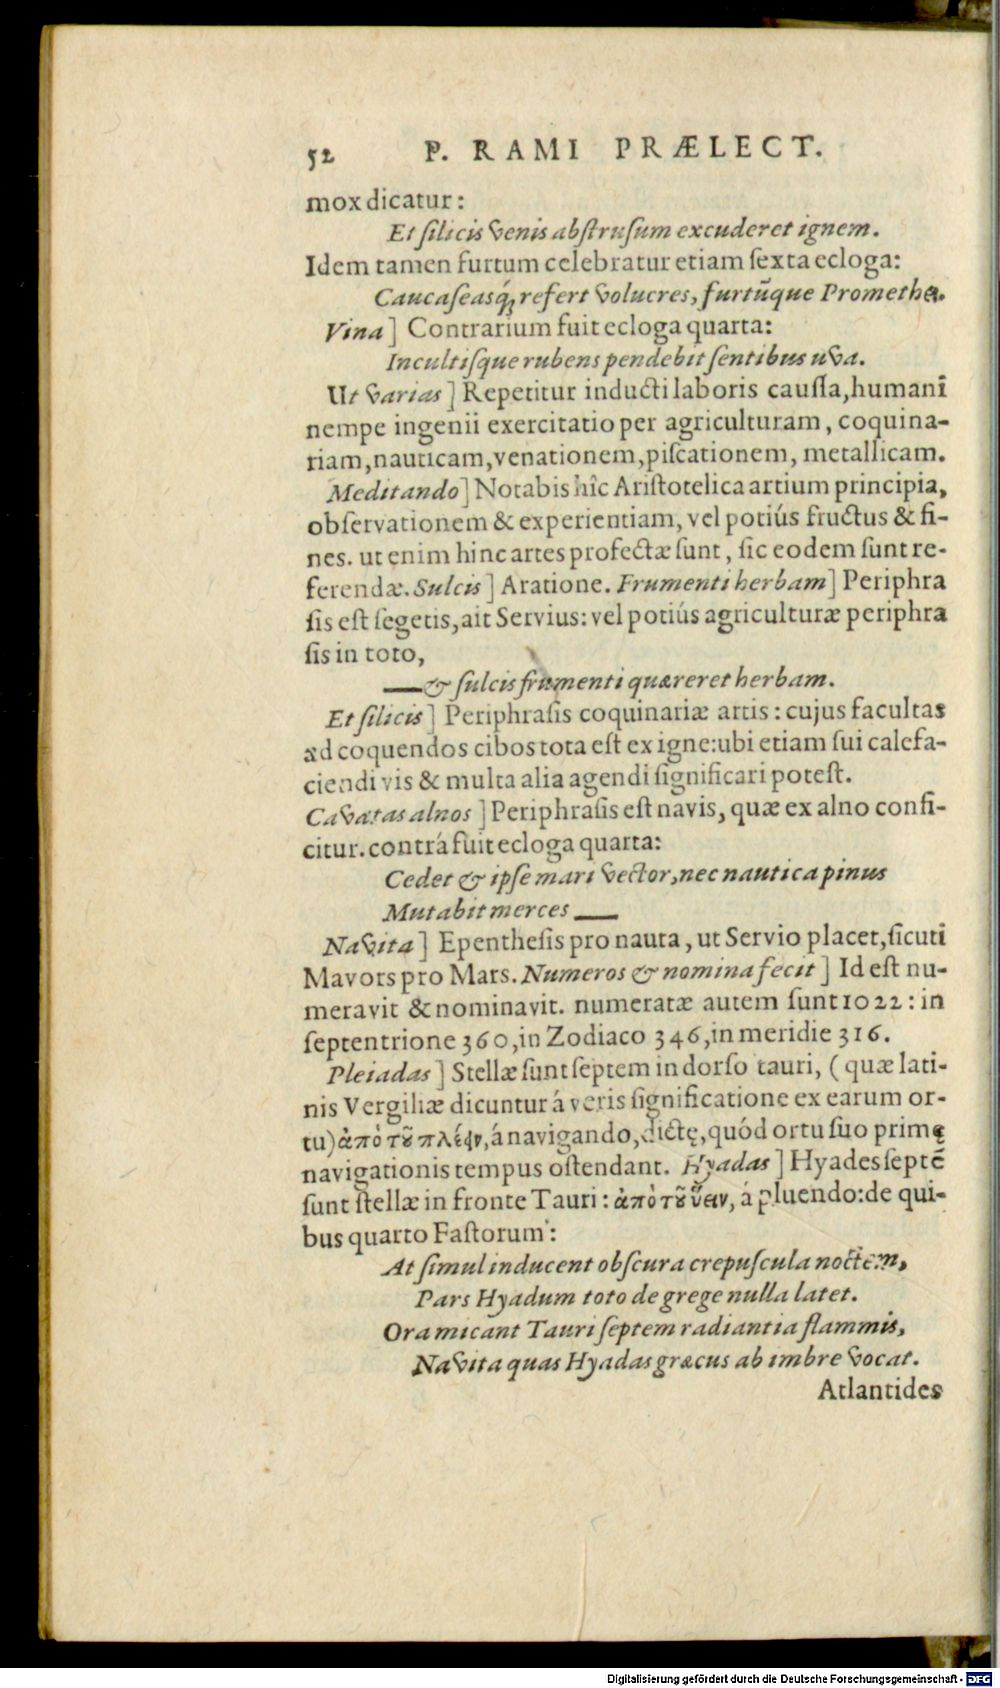 52 P. RAMI PRÆLECT.
mox dicatur:
Et ſilicis venis abſtruſum excuderet ignem.
Idem tamen furtum celebratur etiam ſexta ecloga:
Caucaſeasq́; refert volucres, furtũque Promethei.
Vina] Contrarium fuit ecloga quarta:
Incultiſque rubens pendebit ſentibus uva.
Ut varias] Repetitur inducti laboris cauſſa, humani
nempe ingenii exercitatio per agriculturam, coquina-
riam, nauticam, venationem, piſcationem, metallicam.
Meditando] Notabis hîc Ariſtotelica artium principia,
obſervationem & experientiam, vel potiús fructus & fi-
nes. ut enim hinc artes profectæ ſunt, ſic eodem ſunt re-
ferendæ. Sulcis] Aratione. Frumenti herbam] Periphra
ſis eſt ſegetis, ait Servius: vel potiús agriculturæ periphra
ſis in toto,
— & ſulcis frumenti quæreret herbam.
Et ſilicis] Periphraſis coquinariæ artis: cujus facultas
ad coquendos cibos tota eſt ex igne: ubi etiam ſui calefa-
ciendi vis & multa alia agendi ſignificari poteſt.
Cavatas alnos] Periphraſis eſt navis, quæ ex alno confi-
citur. contrá fuit ecloga quarta:
Cedet & ipſe mari vector, nec nautica pinus
Mutabit merces —
Navita] Epentheſis pro nauta, ut Servio placet, ſicuti
Mavors pro Mars. Numeros & nomina fecit] Id eſt nu-
meravit & nominavit. numeratæ autem ſunt 1022: in
ſeptentrione 360, in Zodiaco 346, in meridie 316.
Pleiadas] Stellæ ſunt ſeptem in dorſo tauri, (quæ lati-
nis Vergiliæ dicuntur á veris ſignificatione ex earum or-
tu) ἀπὸ τοῦ πλέειν, á navigando, dictę, quód ortu ſuo primę
navigationis tempus oſtendant. Hyadas] Hyades ſeptē
ſunt ſtellæ in fronte Tauri: ἀπὸ τοῦ ὕειν, á pluendo: de qui-
bus quarto Faſtorum:
At ſimul inducent obſcura crepuſcula noctem,
Pars Hyadum toto de grege nulla latet.
Ora micant Tauri ſeptem radiantia flammis,
Navita quas Hyadas græcus ab imbre vocat.
Atlantides
Digitalisierung gefördert durch die Deutsche Forschungsgemeinschaft - DFG